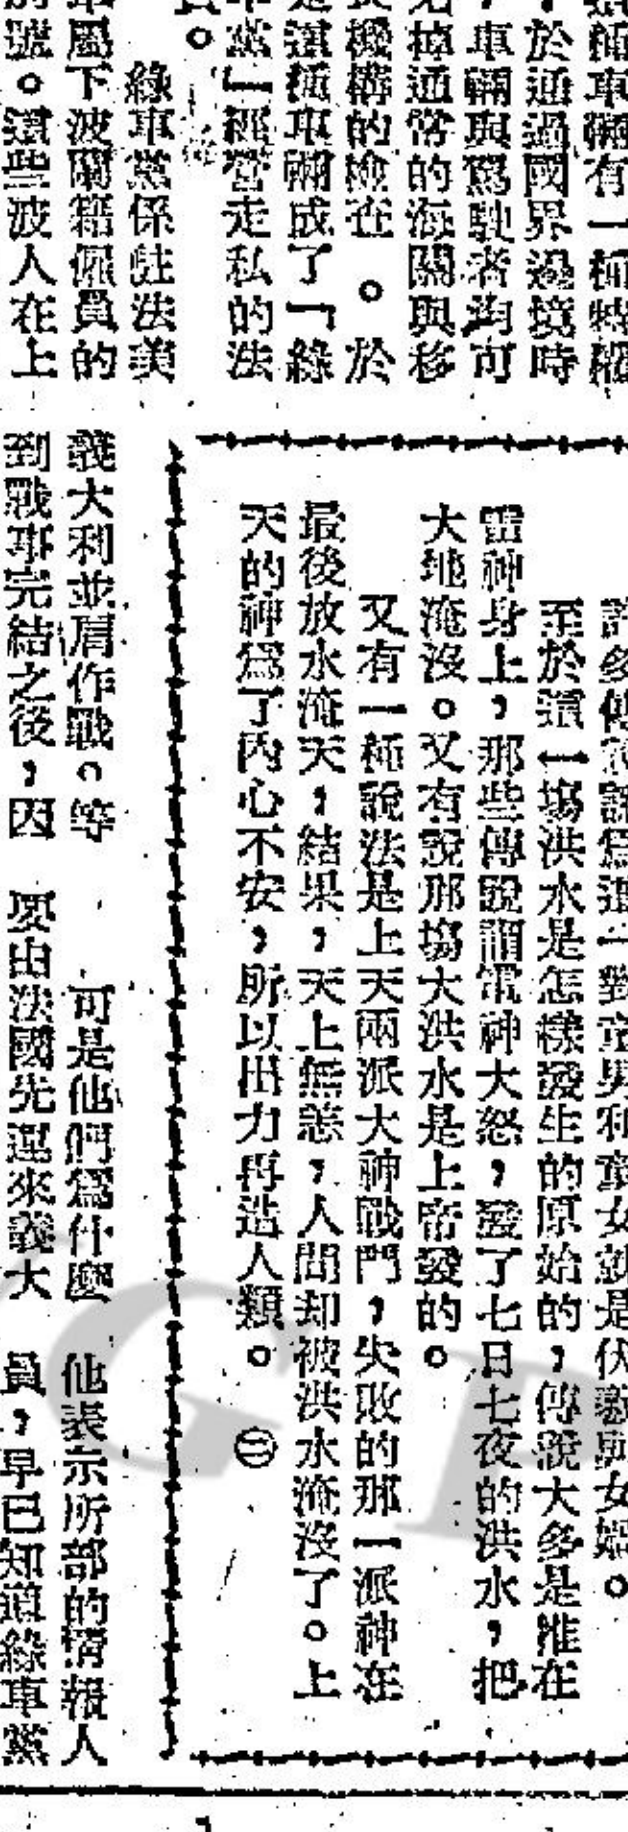 這種車輛有一種特
，於通過國界過境時
，車輛與駕駛者均可
免掉通常的海關與移
民機構的檢查。於
是這種車輛成了「綠
車黨」經營走私的法
。
綠車黨係駐法美
軍屬下波蘭籍僱員的
別號。這些波人在上
許多傳說認爲這一對童男和童女就是伏羲與女媧。
至於這一場洪水是怎樣發生的原始的，傳說大多是推在
雷神身上，那些傳說謂雷神大怒，發了七日七夜的洪水，把
大地淹沒。又有說那場大洪水是上帝發的。
又有一種說法是上天兩派大神戰鬥，失敗的那一派神在
最後放水淹天，結果，天上無恙，人間却被洪水淹沒了。上
天的神爲了內心不安，所以出力再造人類。㊂
義大利並肩作戰。等
到戰事完結之後，因
可是他們爲什麼
要由法國先運來義大
他表示所部的情報人
員，早已知道綠車黨